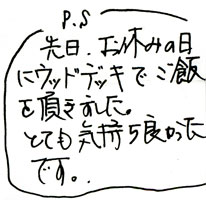 P.S
先日、お休みの日
にウッドデッキでご飯
を頂きました。
とても気持ち良かった
です。